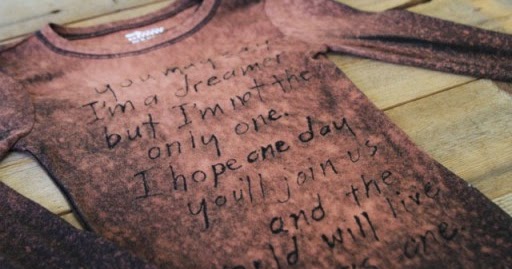 you may
I'm a dreamer
but I'm not the
only one.
I hope one day
you'll join us
and the
will live
one.